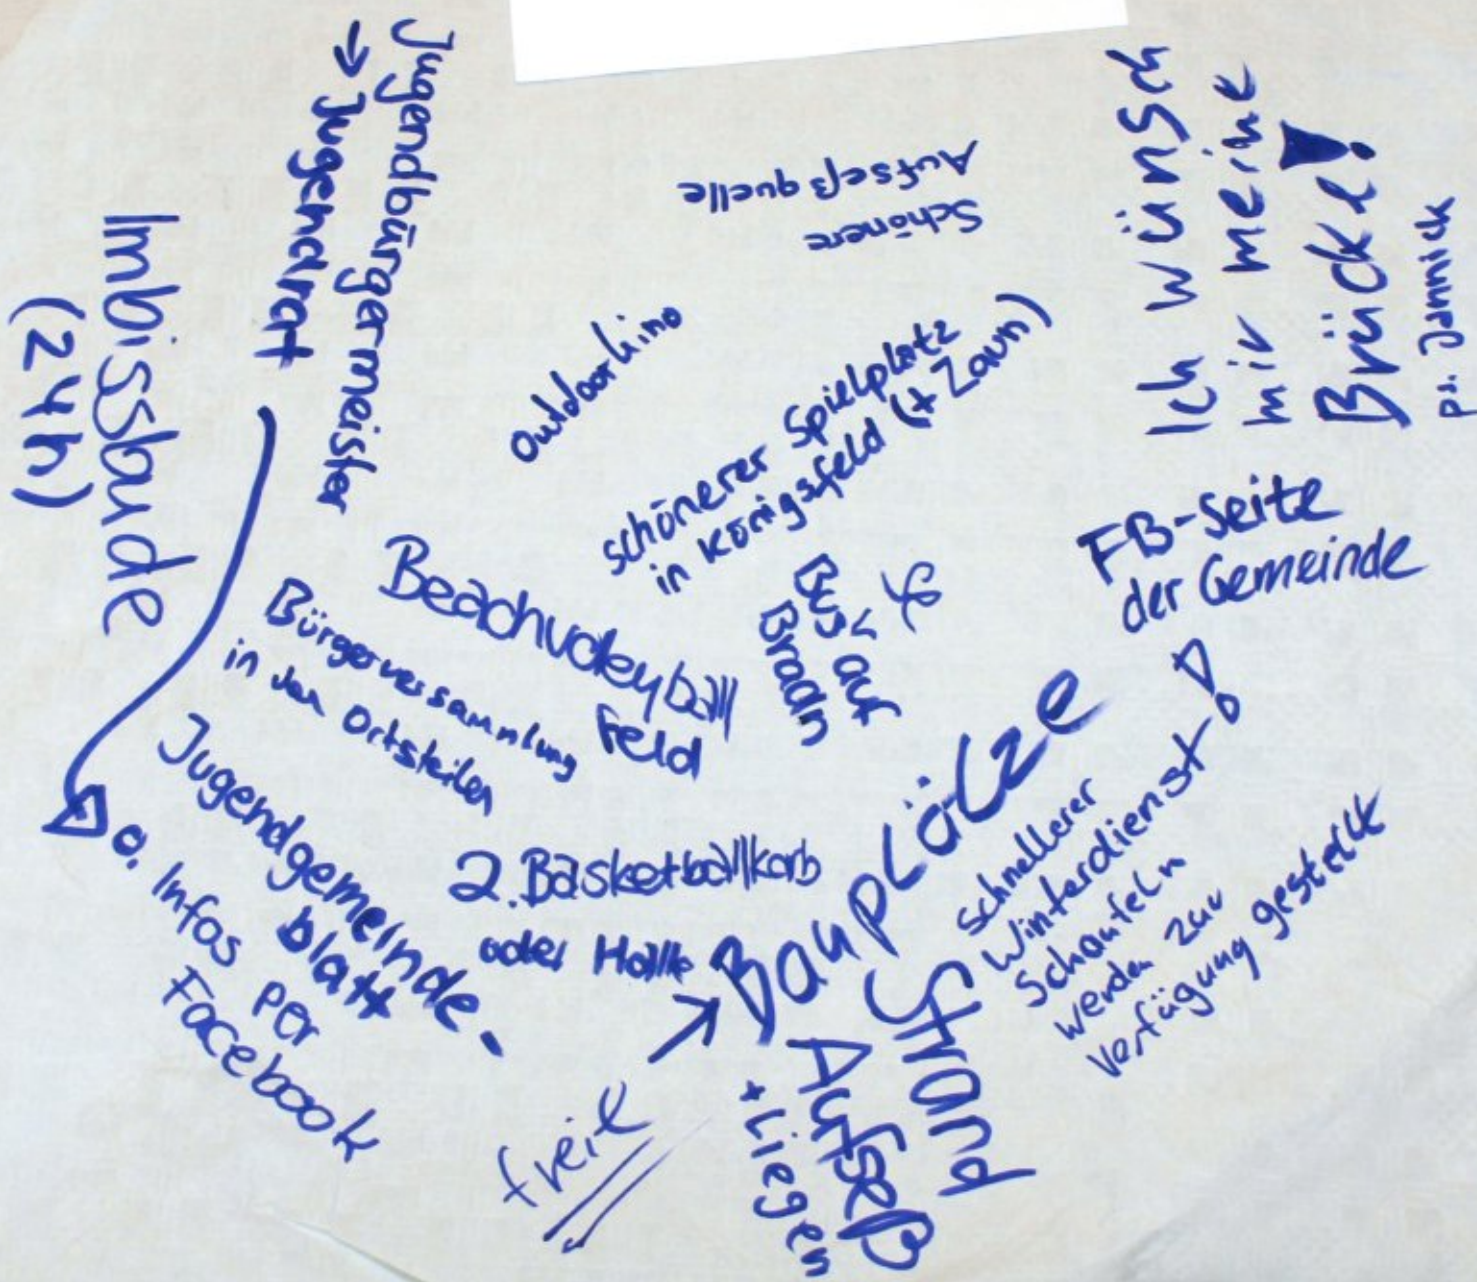 Jugendbürgermeister
→ Jugendrat
Imbissbude
(24h)
Schönere
Aufseßquelle
Outdoorkino
schönerer Spielplatz
in Königsfeld (+ Zaun)
Ich wünsch
mir meine
Brücke!
pr. Jannick
FB-Seite
der Gemeinde
Beachvolleyball
Feld
Bürgerversammlung
in den Ortsteilen
Bus auf
Jugendgemeinde-
blatt
o. Infos per
Facebook
2. Basketballkorb
oder Halle
freie
→ Bauplätze
schnellerer
Winterdienst!
Schaufeln
werden zur
Verfügung gestellt
Strand
Aufseß
+ Liegen